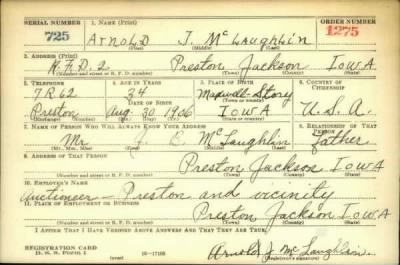 SERIAL NUMBER 1. NAME (Print) ORDER NUMBER
725 ARNOLD J. McLAUGHLIN 1275
(First) (Middle) (Last)
2. ADDRESS (Print)
R.F.D. 2. Preston Jackson IOWA
(Number and street or R. F. D. number) (Town) (County) (State)
3. TELEPHONE 4. AGE IN YEARS 5. PLACE OF BIRTH 6. COUNTRY OF CITIZENSHIP
7R62 34 Maxwell-Story
DATE OF BIRTH (Town or county)
Preston Aug. 30 1906 IOWA U.S.A.
(Exchange) (Number) (Mo.) (Day) (Yr.) (State or country)
7. NAME OF PERSON WHO WILL ALWAYS KNOW YOUR ADDRESS 8. RELATIONSHIP OF THAT PERSON
Mr. McLaughlin Father
(Mr., Mrs., Miss) (First) (Middle) (Last)
9. ADDRESS OF THAT PERSON
Preston Jackson IOWA
(Number and street or R. F. D. number) (Town) (County) (State)
10. EMPLOYER'S NAME
Auctioneer - Preston and vicinity
11. PLACE OF EMPLOYMENT OR BUSINESS
Preston Jackson IOWA
(Number and street or R. F. D. number) (Town) (County) (State)
I AFFIRM THAT I HAVE VERIFIED ABOVE ANSWERS AND THAT THEY ARE TRUE.
REGISTRATION CARD
D. S. S. FORM 1 (over) 16-17105 Arnold J. McLaughlin.